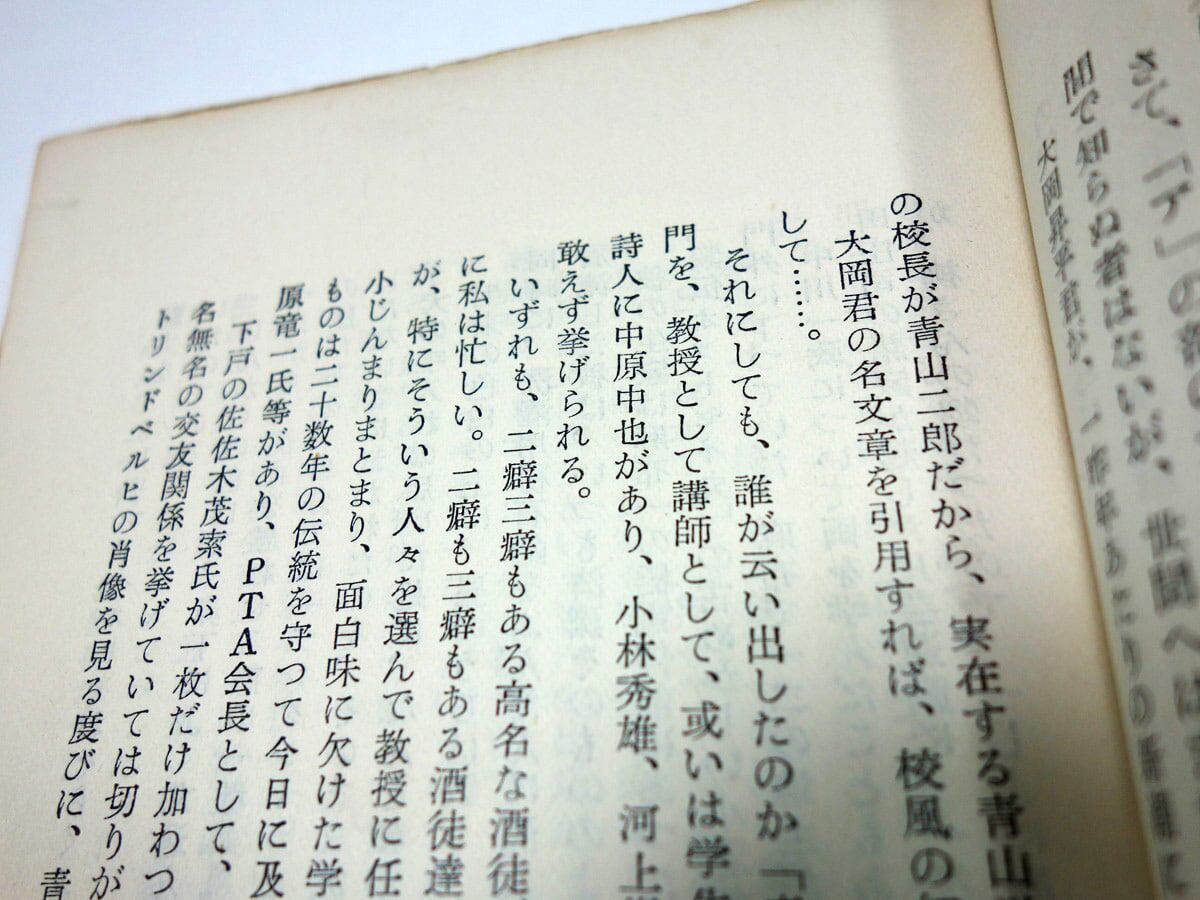 さて、「デ」の章の
間で知らぬ者はないが、世間へは
大岡昇平君が、一昨年あたりの
の校長が青山二郎だから、実在する青山
大岡君の名文章を引用すれば、校風の
して……。
それにしても、誰が云い出したのか「
門を、教授として講師として、或いは学生
詩人に中原中也があり、小林秀雄、河上
敢えず挙げられる。
いずれも、二癖三癖もある高名な酒徒
に私は忙しい。二癖も三癖もある酒徒達
が、特にそういう人々を選んで教授に任
小じんまりまとまり、面白味に欠けた学
ものは二十数年の伝統を守つて今日に及
原竜一氏等があり、PTA会長として、
下戸の佐佐木茂索氏が一枚だけ加わつ
名無名の交友関係を挙げていては切りが
トリンドベルヒの肖像を見る度びに、青